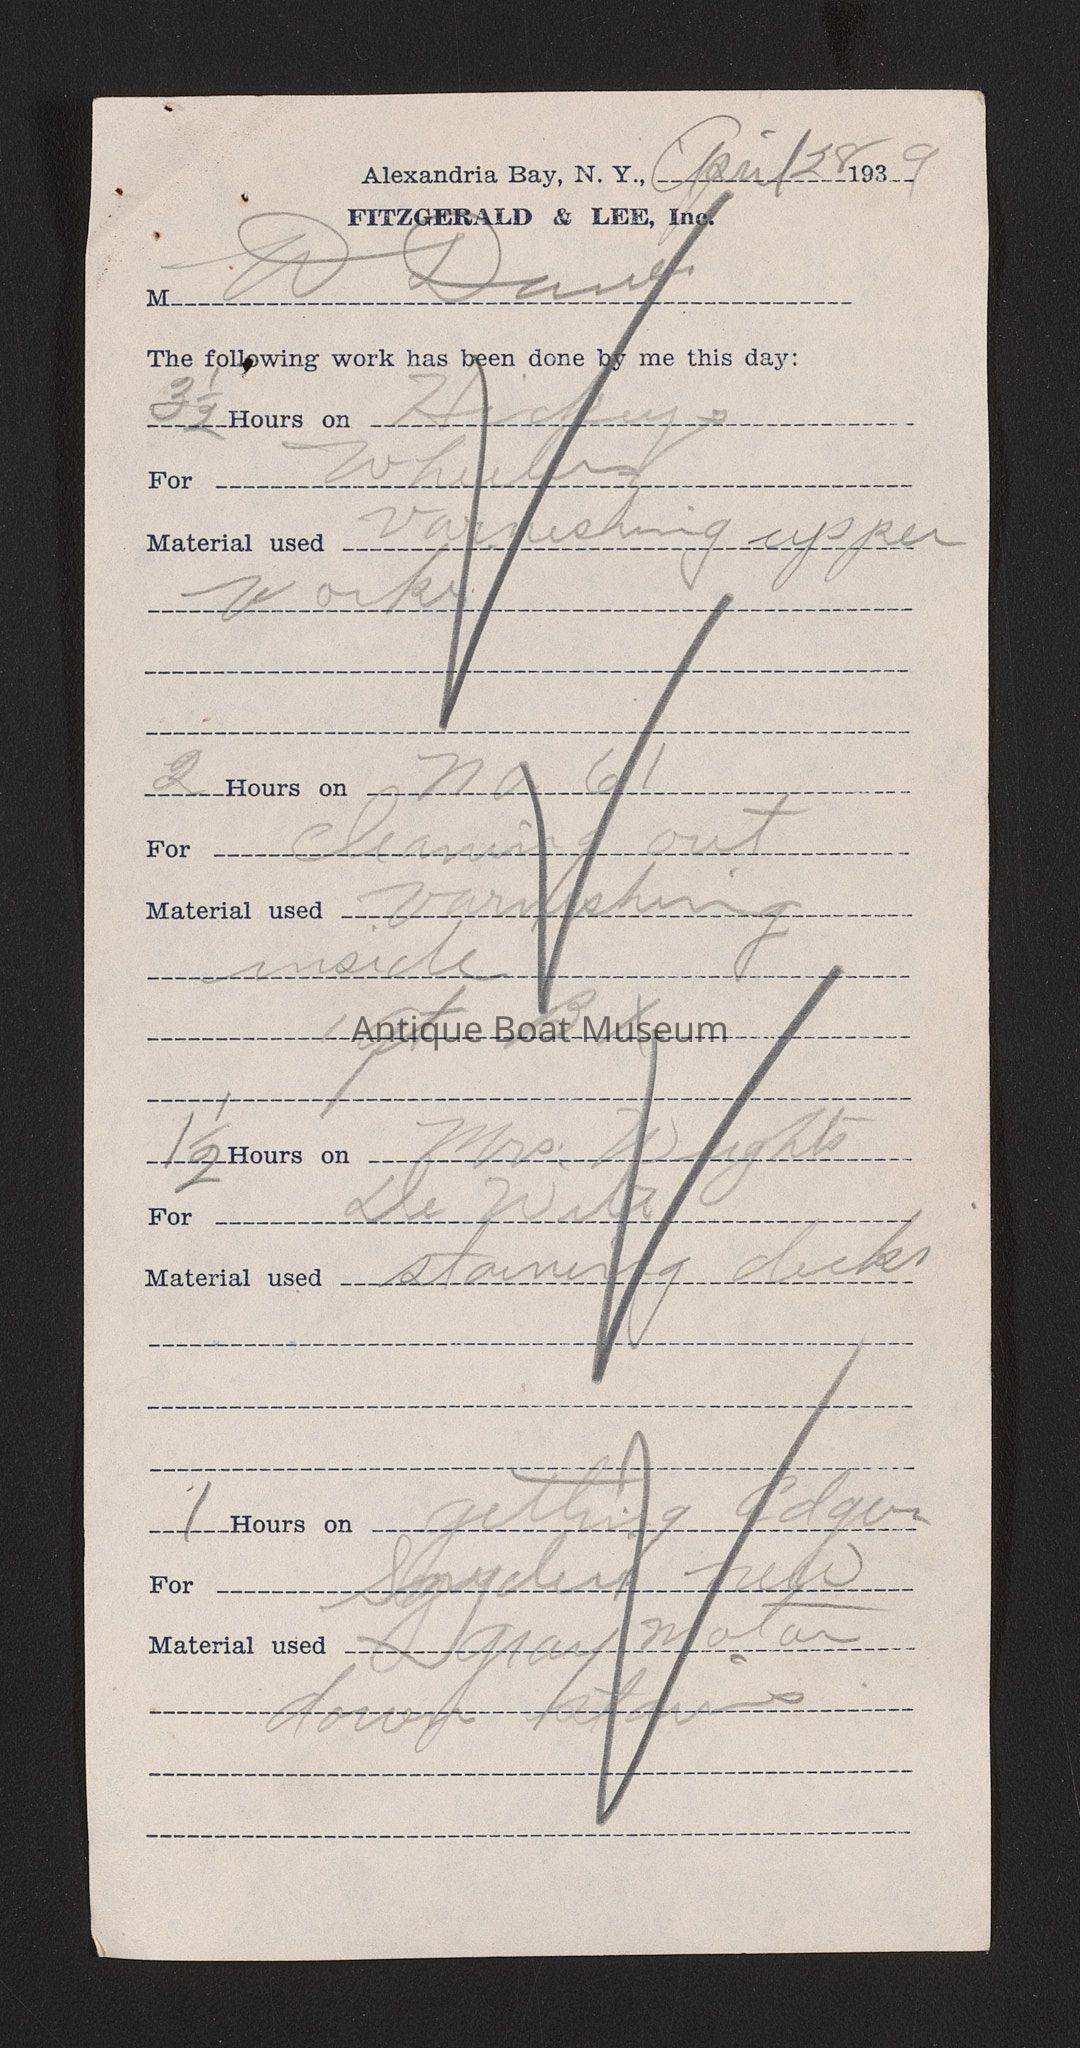 Alexandria Bay, N. Y., April 28 1939
FITZGERALD & LEE, Inc.
M W
The following work has been done by me this day:
3 1/2 Hours on Hickeys
For Wheeler
Material used varnishing upper
works
2 Hours on No 61
For cleaning out
Material used varnishing
inside
1 qt
Antique Boat Museum
1 1/2 Hours on Mrs. Wrights
For
Material used staining decks
1 Hours on getting Edgar
For Snyders new
Material used gray motor
down stairs